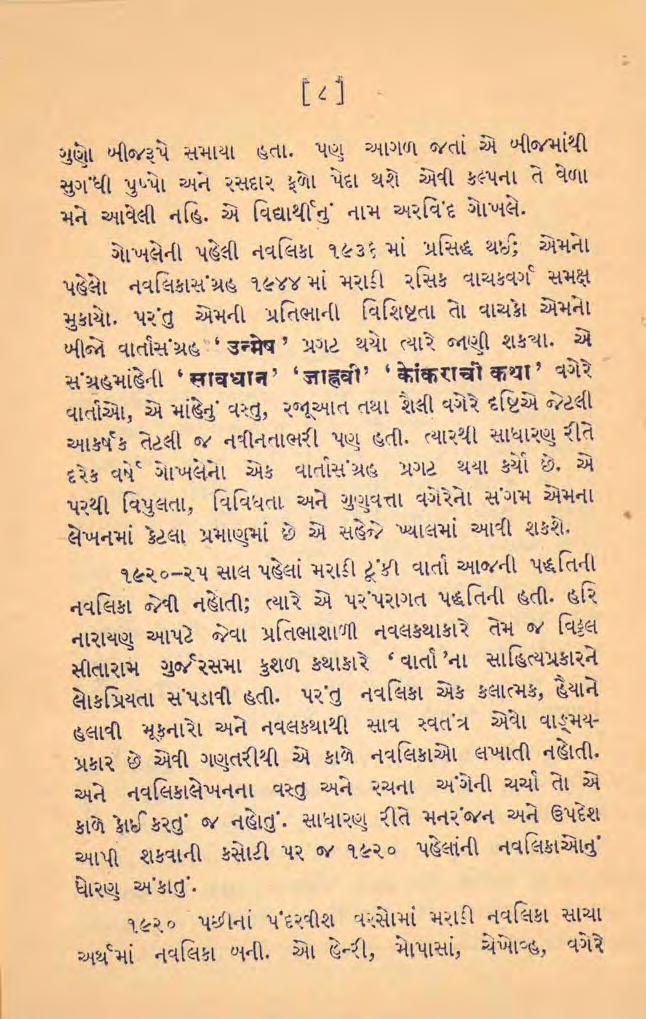 [ ૮ ]
ગુણો બીજરૂપે સમાયા હતા. પણ આગળ જતાં એ બીજમાંથી
સુગંધી પુષ્પો અને રસદાર ફળો પેદા થશે એવી કલ્પના તે વેળા
મને આવેલી નહિ. એ વિદ્યાર્થીનું નામ અરવિંદ ગોખલે.
ગોખલેની પહેલી નવલિકા ૧૯૩૬ માં પ્રસિદ્ધ થઈ; એમનો
પહેલો નવલિકાસંગ્રહ ૧૯૪૪ માં મરાઠી રસિક વાચકવર્ગ સમક્ષ
મુકાયો. પરંતુ એમની પ્રતિભાની વિશિષ્ટતા તો વાચકો એમનો
બીજો વાર્તાસંગ્રહ ‘ उन्मेष ’ પ્રગટ થયો ત્યારે જાણી શકયા. એ
સંગ્રહમાંહેની ‘ सावधान ’ ‘ जाह्नवी ’ ‘ कोंकराची कथा ’ વગેરે
વાર્તાઓ, એ માંહેનું વસ્તુ, રજૂઆત તથા શૈલી વગેરે દૃષ્ટિએ જેટલી
આકર્ષક તેટલી જ નવીનતાભરી પણ હતી. ત્યારથી સાધારણ રીતે
દરેક વર્ષે ગોખલેનો એક વાર્તાસંગ્રહ પ્રગટ થયા કર્યો છે. એ
પરથી વિપુલતા, વિવિધતા અને ગુણવત્તા વગેરેનો સંગમ એમના
લેખનમાં કેટલા પ્રમાણમાં છે એ સહેજે ખ્યાલમાં આવી શકશે.
૧૯૨૦–૨૫ સાલ પહેલાં મરાઠી ટૂંકી વાર્તા આજની પદ્ધતિની
નવલિકા જેવી નહોતી; ત્યારે એ પરંપરાગત પદ્ધતિની હતી. હરિ
નારાયણ આપટે જેવા પ્રતિભાશાળી નવલકથાકારે તેમ જ વિઠ્ઠલ
સીતારામ ગુર્જરસમા કુશળ કથાકારે ‘ વાર્તા ’ના સાહિત્યપ્રકારને
લોકપ્રિયતા સંપડાવી હતી. પરંતુ નવલિકા એક કલાત્મક, હૈયાને
હલાવી મૂકનારો અને નવલકથાથી સાવ સ્વતંત્ર એવો વાઙ્મય-
પ્રકાર છે એવી ગણતરીથી એ કાળે નવલિકાઓ લખાતી નહોતી.
અને નવલિકાલેખનના વસ્તુ અને રચના અંગેની ચર્ચા તો એ
કાળે કોઈ કરતું જ નહોતું. સાધારણ રીતે મનરંજન અને ઉપદેશ
આપી શકવાની કસોટી પર જ ૧૯૨૦ પહેલાંની નવલિકાઓનું
ધોરણ અંકાતું.
૧૯૨૦ પછીનાં પંદરવીશ વરસોમાં મરાઠી નવલિકા સાચા
અર્થમાં નવલિકા બની. ઓ હેન્રી, મોપાસાં, ચેખોવ્હ, વગેરે